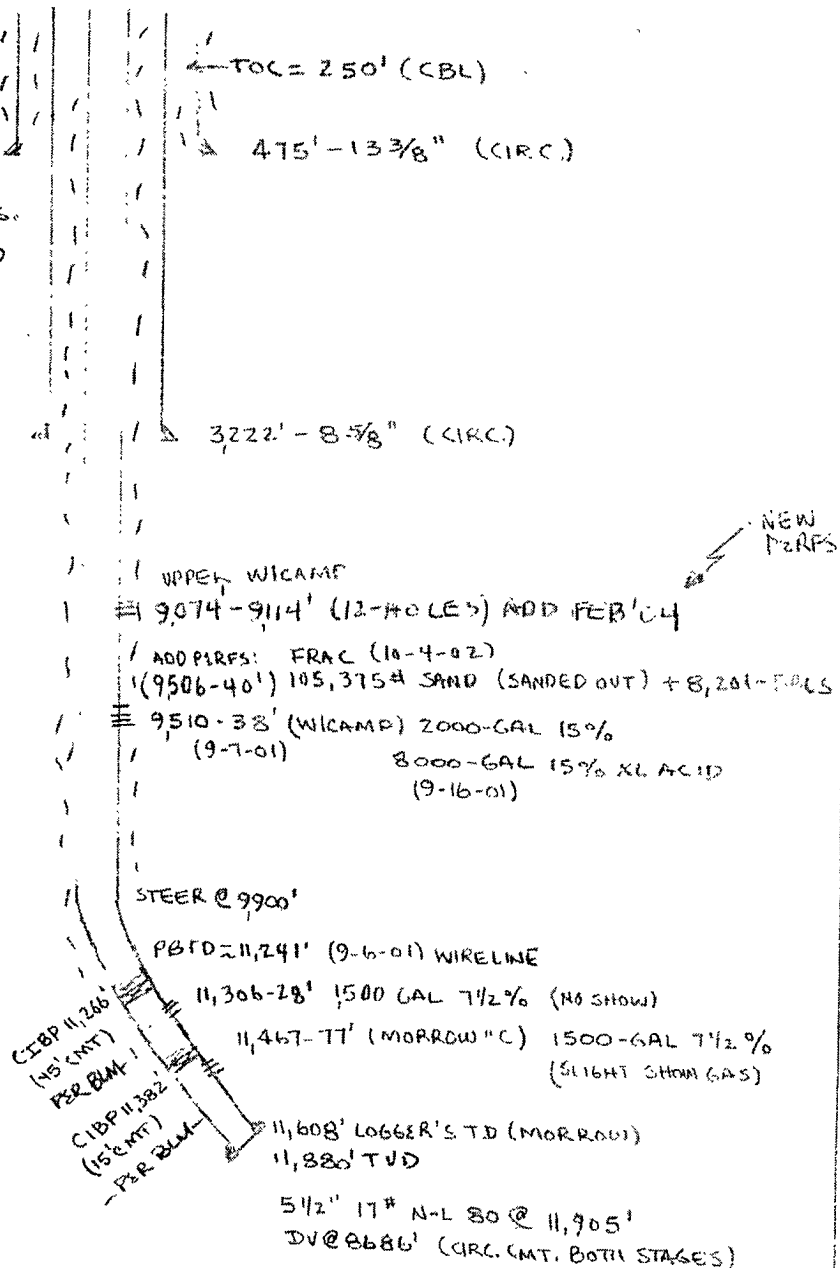 TOC = 250' (CBL)
475' - 13 3/8" (CIRC.)
S.
3,222' - 8 5/8" (CIRC.)
NEW
PERFS
UPPER WICAMP
9,074' - 9,114' (12-HOLES) ADD FEB '04
ADD PERFS: FRAC (10-4-02)
(9506-40') 105,375# SAND (SANDED OUT) + 8,201-
9,510-38' (WICAMP) 2000-GAL 15%
(9-7-01)
8000-GAL 15% XL ACID
(9-16-01)
STEER @ 9,900'
PBTD = 11,241' (9-6-01) WIRELINE
11,306-28' 1,500 GAL 7 1/2 % (NO SHOW)
CIBP 11,266'
(45' CMT)
PER BLM
11,467-77' (MORROW "C) 1500-GAL 7 1/2 %
(SLIGHT SHOW GAS)
CIBP 11,382'
(15' CMT)
- PER BLM -
11,608' LOGGER'S TD (MORROW)
11,880' TVD
5 1/2" 17# N-L 80 @ 11,905'
DV @ 8686' (CIRC. CMT. BOTH STAGES)